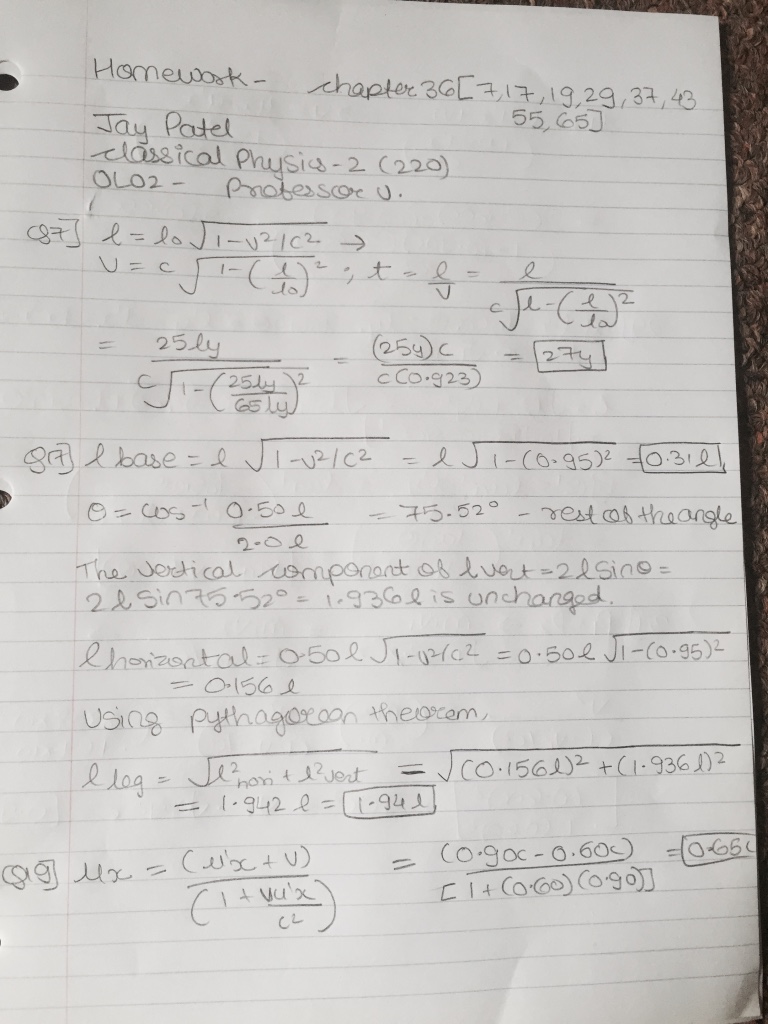 Homework - chapter 36 [7,17,19,29,37,43
55,65]
Jay Patel
classical Physics-2 (220)
OL02 - Professor U.
Q7] l = l0 √1-v²/c² →
v = c √1-(l/l0)² ; t = l/v = l/c√1-(l/l0)²
= 25ly/c√1-(25ly/65ly)² = (25y)c/c(0.923) = 27y
Q17] l base = l √1-v²/c² = l √1-(0.95)² = 0.31l
θ = cos⁻¹ 0.50l/2.0l = 75.52° - rest of the angle
The vertical component of l vert = 2l sinθ =
2l sin 75.52° = 1.936l is unchanged.
l horizontal = 0.50l √1-v²/c² = 0.50l √1-(0.95)²
= 0.156l
Using pythagorean theorem,
l leg = √l²hori + l²vert = √(0.156l)² + (1.936l)²
= 1.942l = 1.94l
Q19] ux = (u'x + v)/(1 + vu'x/c²) = (0.90c - 0.60c)/[1+(0.60)(0.90)] = 0.65c